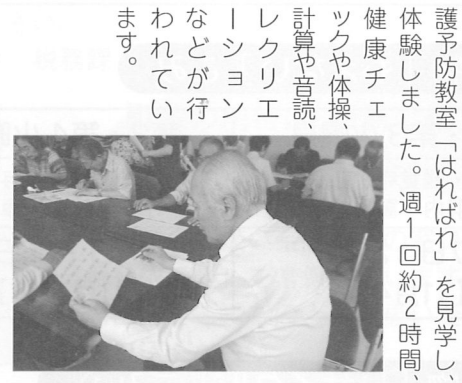 護予防教室「はればれ」を見学し、
体験しました。週1回約2時間、
健康チェ
ックや体操、
計算や音読、
レクリエ
ーション
などが行
われてい
ます。